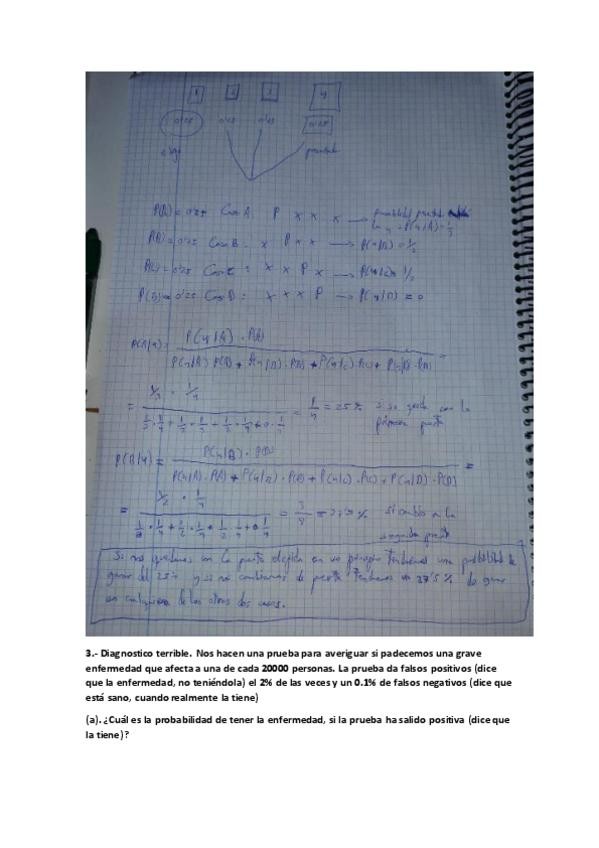 1 2 3 4
0'25 0'25 0'25 0'25
P(A) = 0'25 Caso A: P x x x → probabilidad puerta
la 4 = P(4/A) = 1/3
P(B) = 0'25 Caso B: x P x x → P(4/B) = 1/2
P(C) = 0'25 Caso C: x x P x → P(4/C) = 1/2
P(D) = 0'25 Caso D: x x x P → P(4/D) = 0
P(A/4) = P(4/A) · P(A)
P(4/A) · P(A) + P(4/B) · P(B) + P(4/C) · P(C) + P(4/D) · P(D) =
= 1/3 · 1/4
1/3 · 1/4 + 1/2 · 1/4 + 1/2 · 1/4 + 0 · 1/4 = 1/4 = 25% si se queda con la
primera puerta
P(B/4) = P(4/B) · P(B)
P(4/A) · P(A) + P(4/B) · P(B) + P(4/C) · P(C) + P(4/D) · P(D) =
= 1/2 · 1/4
1/3 · 1/4 + 1/2 · 1/4 + 1/2 · 1/4 + 0 · 1/4 = 3/8 = 37'5% si cambio a la
segunda puerta
Si nos quedamos con la puerta elegida en un principio tendremos una probabilidad de
ganar del 25% y si no cambiamos de puerta tendremos un 37'5% de ganar
en cualquiera de los otros dos casos.
3.- Diagnostico terrible. Nos hacen una prueba para averiguar si padecemos una grave
enfermedad que afecta a una de cada 20000 personas. La prueba da falsos positivos (dice
que la enfermedad, no teniéndola) el 2% de las veces y un 0.1% de falsos negativos (dice que
está sano, cuando realmente la tiene)
(a). ¿Cuál es la probabilidad de tener la enfermedad, si la prueba ha salido positiva (dice que
la tiene)?